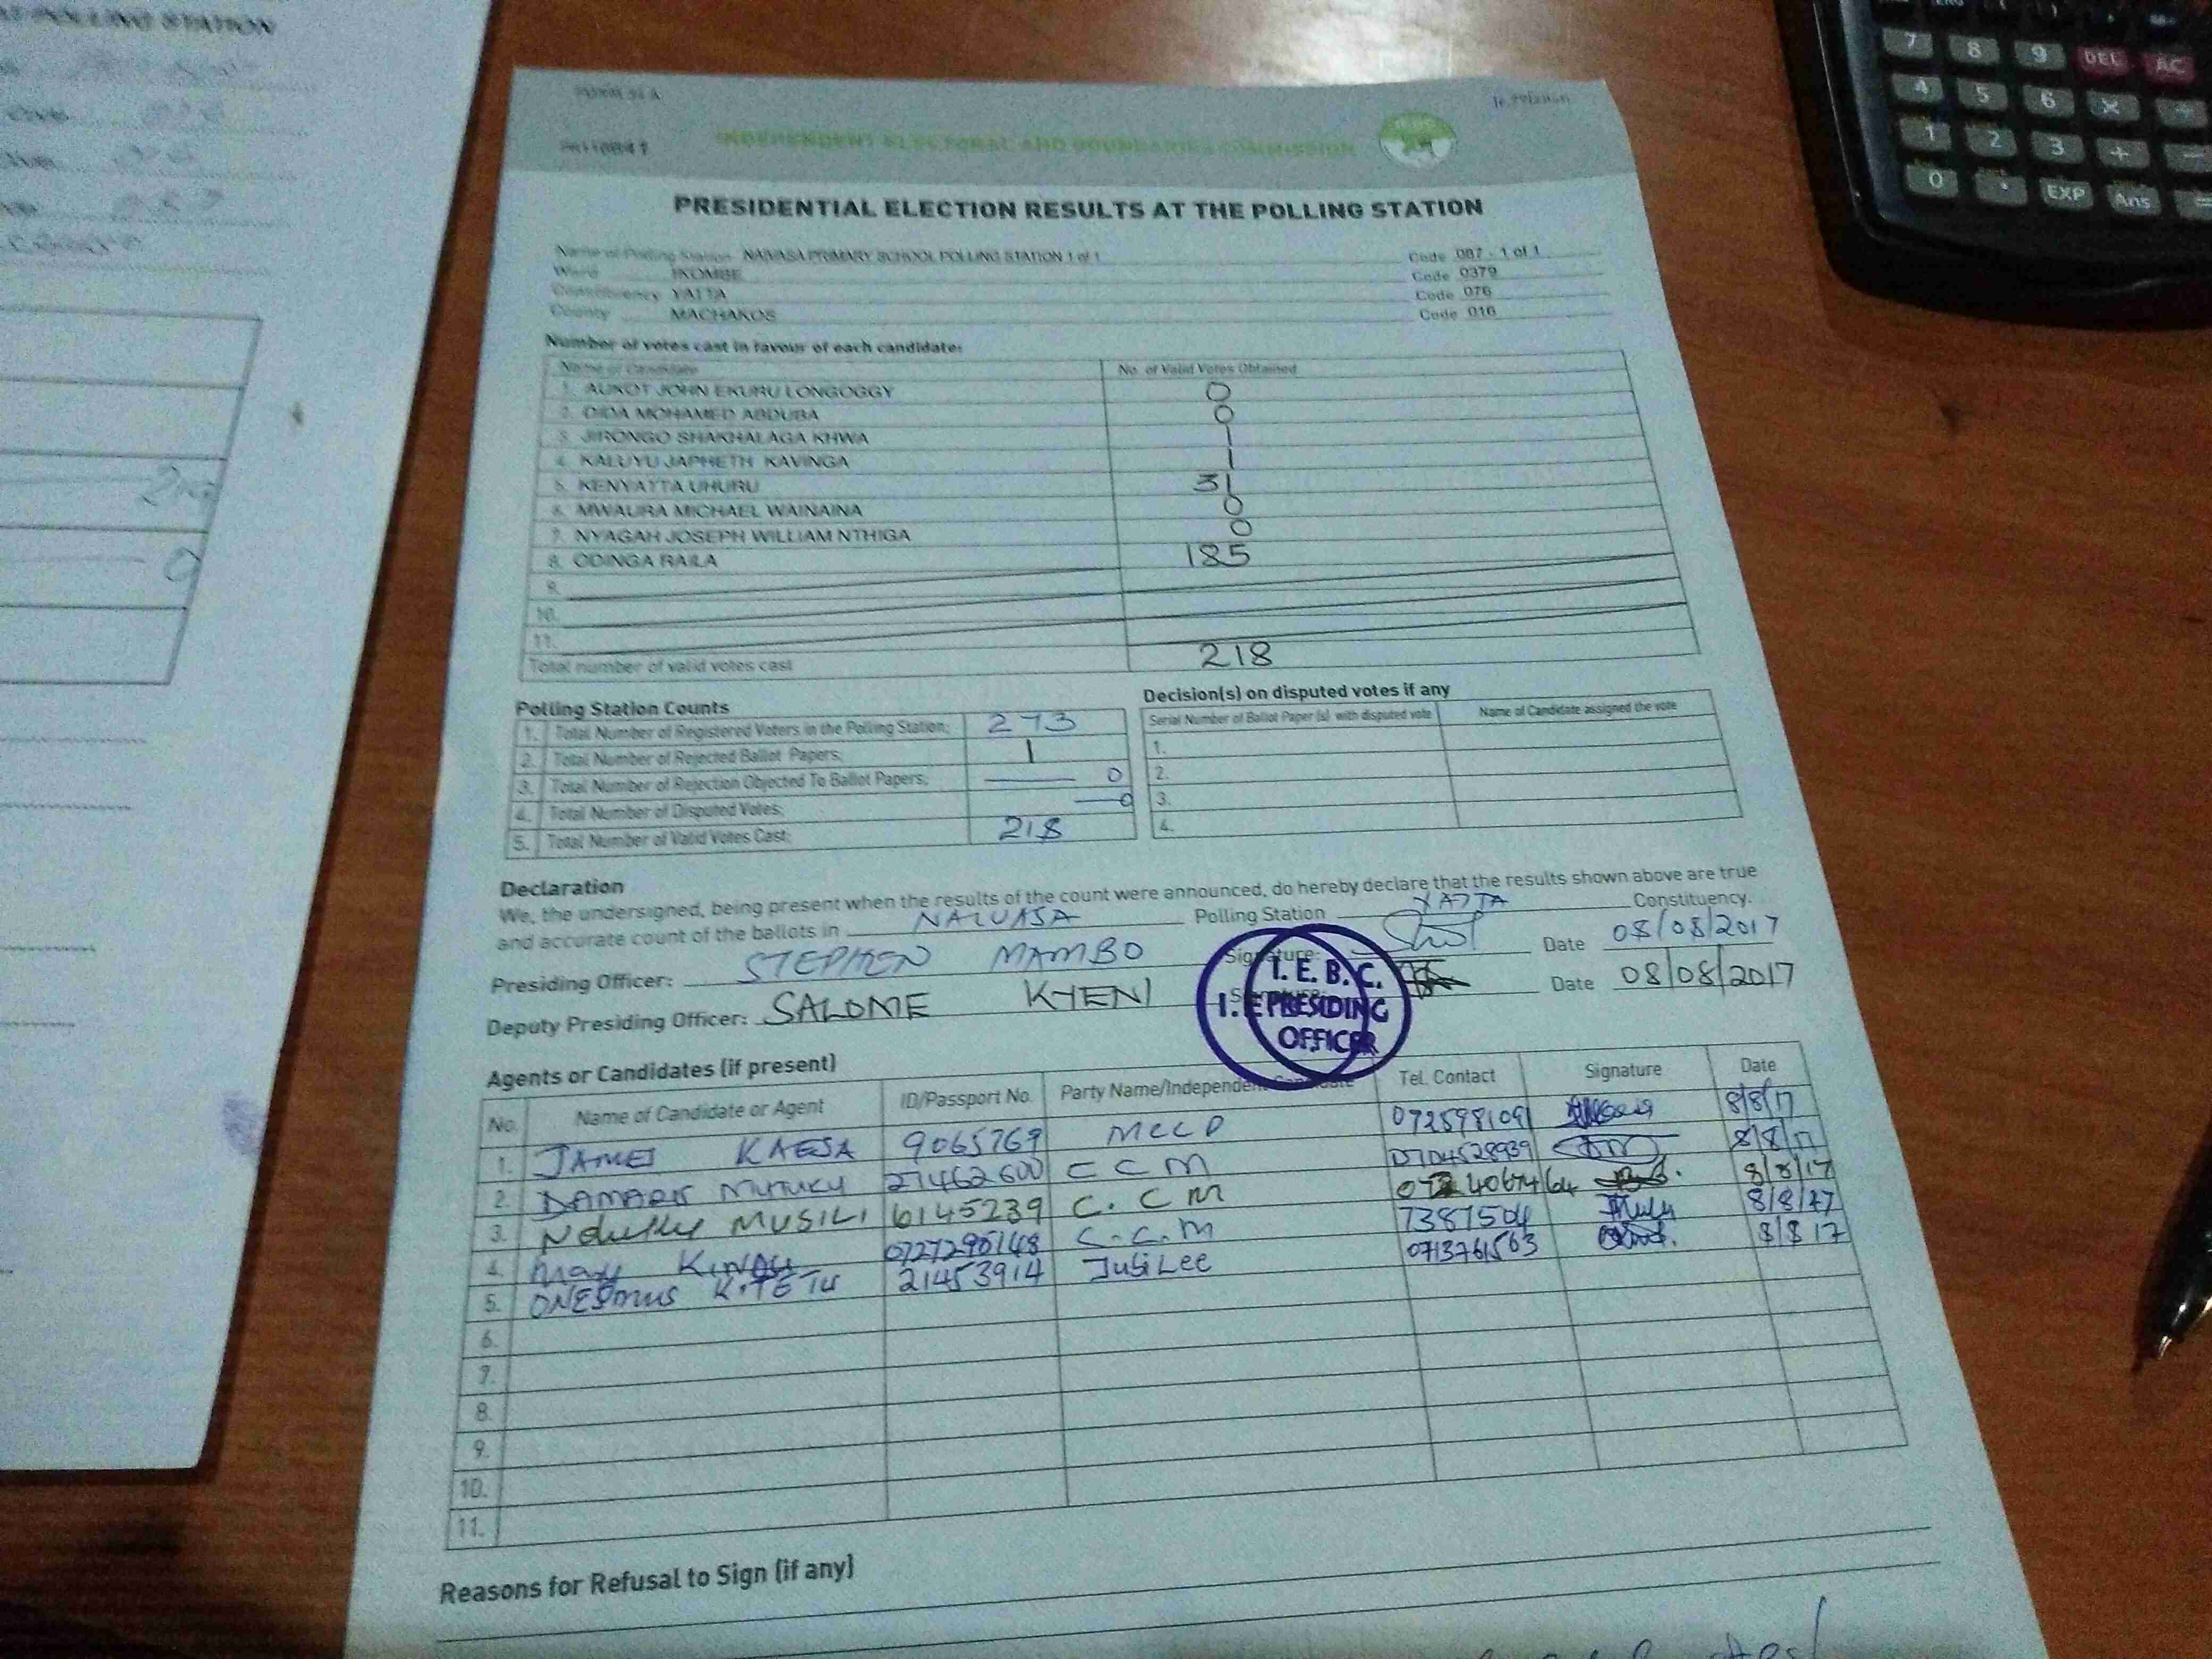 AT POLLING STATION
FORM 34 A
INDEPENDENT ELECTORAL AND BOUNDARIES COMMISSION
PRESIDENTIAL ELECTION RESULTS AT THE POLLING STATION
Name of Polling Station PRIMARY SCHOOL POLLING STATION 1 of 1 Code 087 - 1 of 1
Ward IKOMBE Code 0379
Constituency YATTA Code 076
County MACHAKOS Code 016
Number of votes cast in favour of each candidate:
Name of Candidate No. of Valid Votes Obtained
1. AUKOT JOHN EKURU LONGOGGY 0
2. DIDA MOHAMED ABDUBA 0
3. JIRONGO SHAKHALAGA KHWA 1
4. KALUYU JAPHETH KAVINGA 1
5. KENYATTA UHURU 31
6. MWAURA MICHAEL WAINAINA 0
7. NYAGAH JOSEPH WILLIAM NTHIGA 0
8. ODINGA RAILA 185
9.
10.
11.
Total number of valid votes cast 218
Polling Station Counts
1. Total Number of Registered Voters in the Polling Station; 273
2. Total Number of Rejected Ballot Papers; 1
3. Total Number of Rejection Objected To Ballot Papers; 0
4. Total Number of Disputed Votes; 0
5. Total Number of Valid Votes Cast; 218
Decision(s) on disputed votes if any
Serial Number of Ballot Paper (s) with disputed vote Name of Candidate assigned the vote
1.
2.
3.
4.
Declaration
We, the undersigned, being present when the results of the count were announced, do hereby declare that the results shown above are true
and accurate count of the ballots in Polling Station YATTA Constituency.
Presiding Officer: STEPHEN MAMBO Signature: Date 08/08/2017
Deputy Presiding Officer: SALOME KYENI Date 08/08/2017
I. E. B. C.
PRESIDING
OFFICER
Agents or Candidates (if present)
No. Name of Candidate or Agent ID/Passport No. Party Name/Independent Candidate Tel. Contact Signature Date
1. JAMES KAESA 9065769 MCCP 0725981091 8/8/17
2. DAMARIS MUTUKU 27462600 CCM 0704528939 8/8/17
3. MUSILI 6145239 C.CM 8/8/17
4. Mary 0727290148 C.C.M 7387504 8/8/17
5. ONESMUS KITETU 21453914 JubiLee 0713761563 8/8 17
6.
7.
8.
9.
10.
11.
Reasons for Refusal to Sign (if any)
7 8 9 DEL AC
4 5 6 ×
1 2 3 + −
0 . EXP Ans =